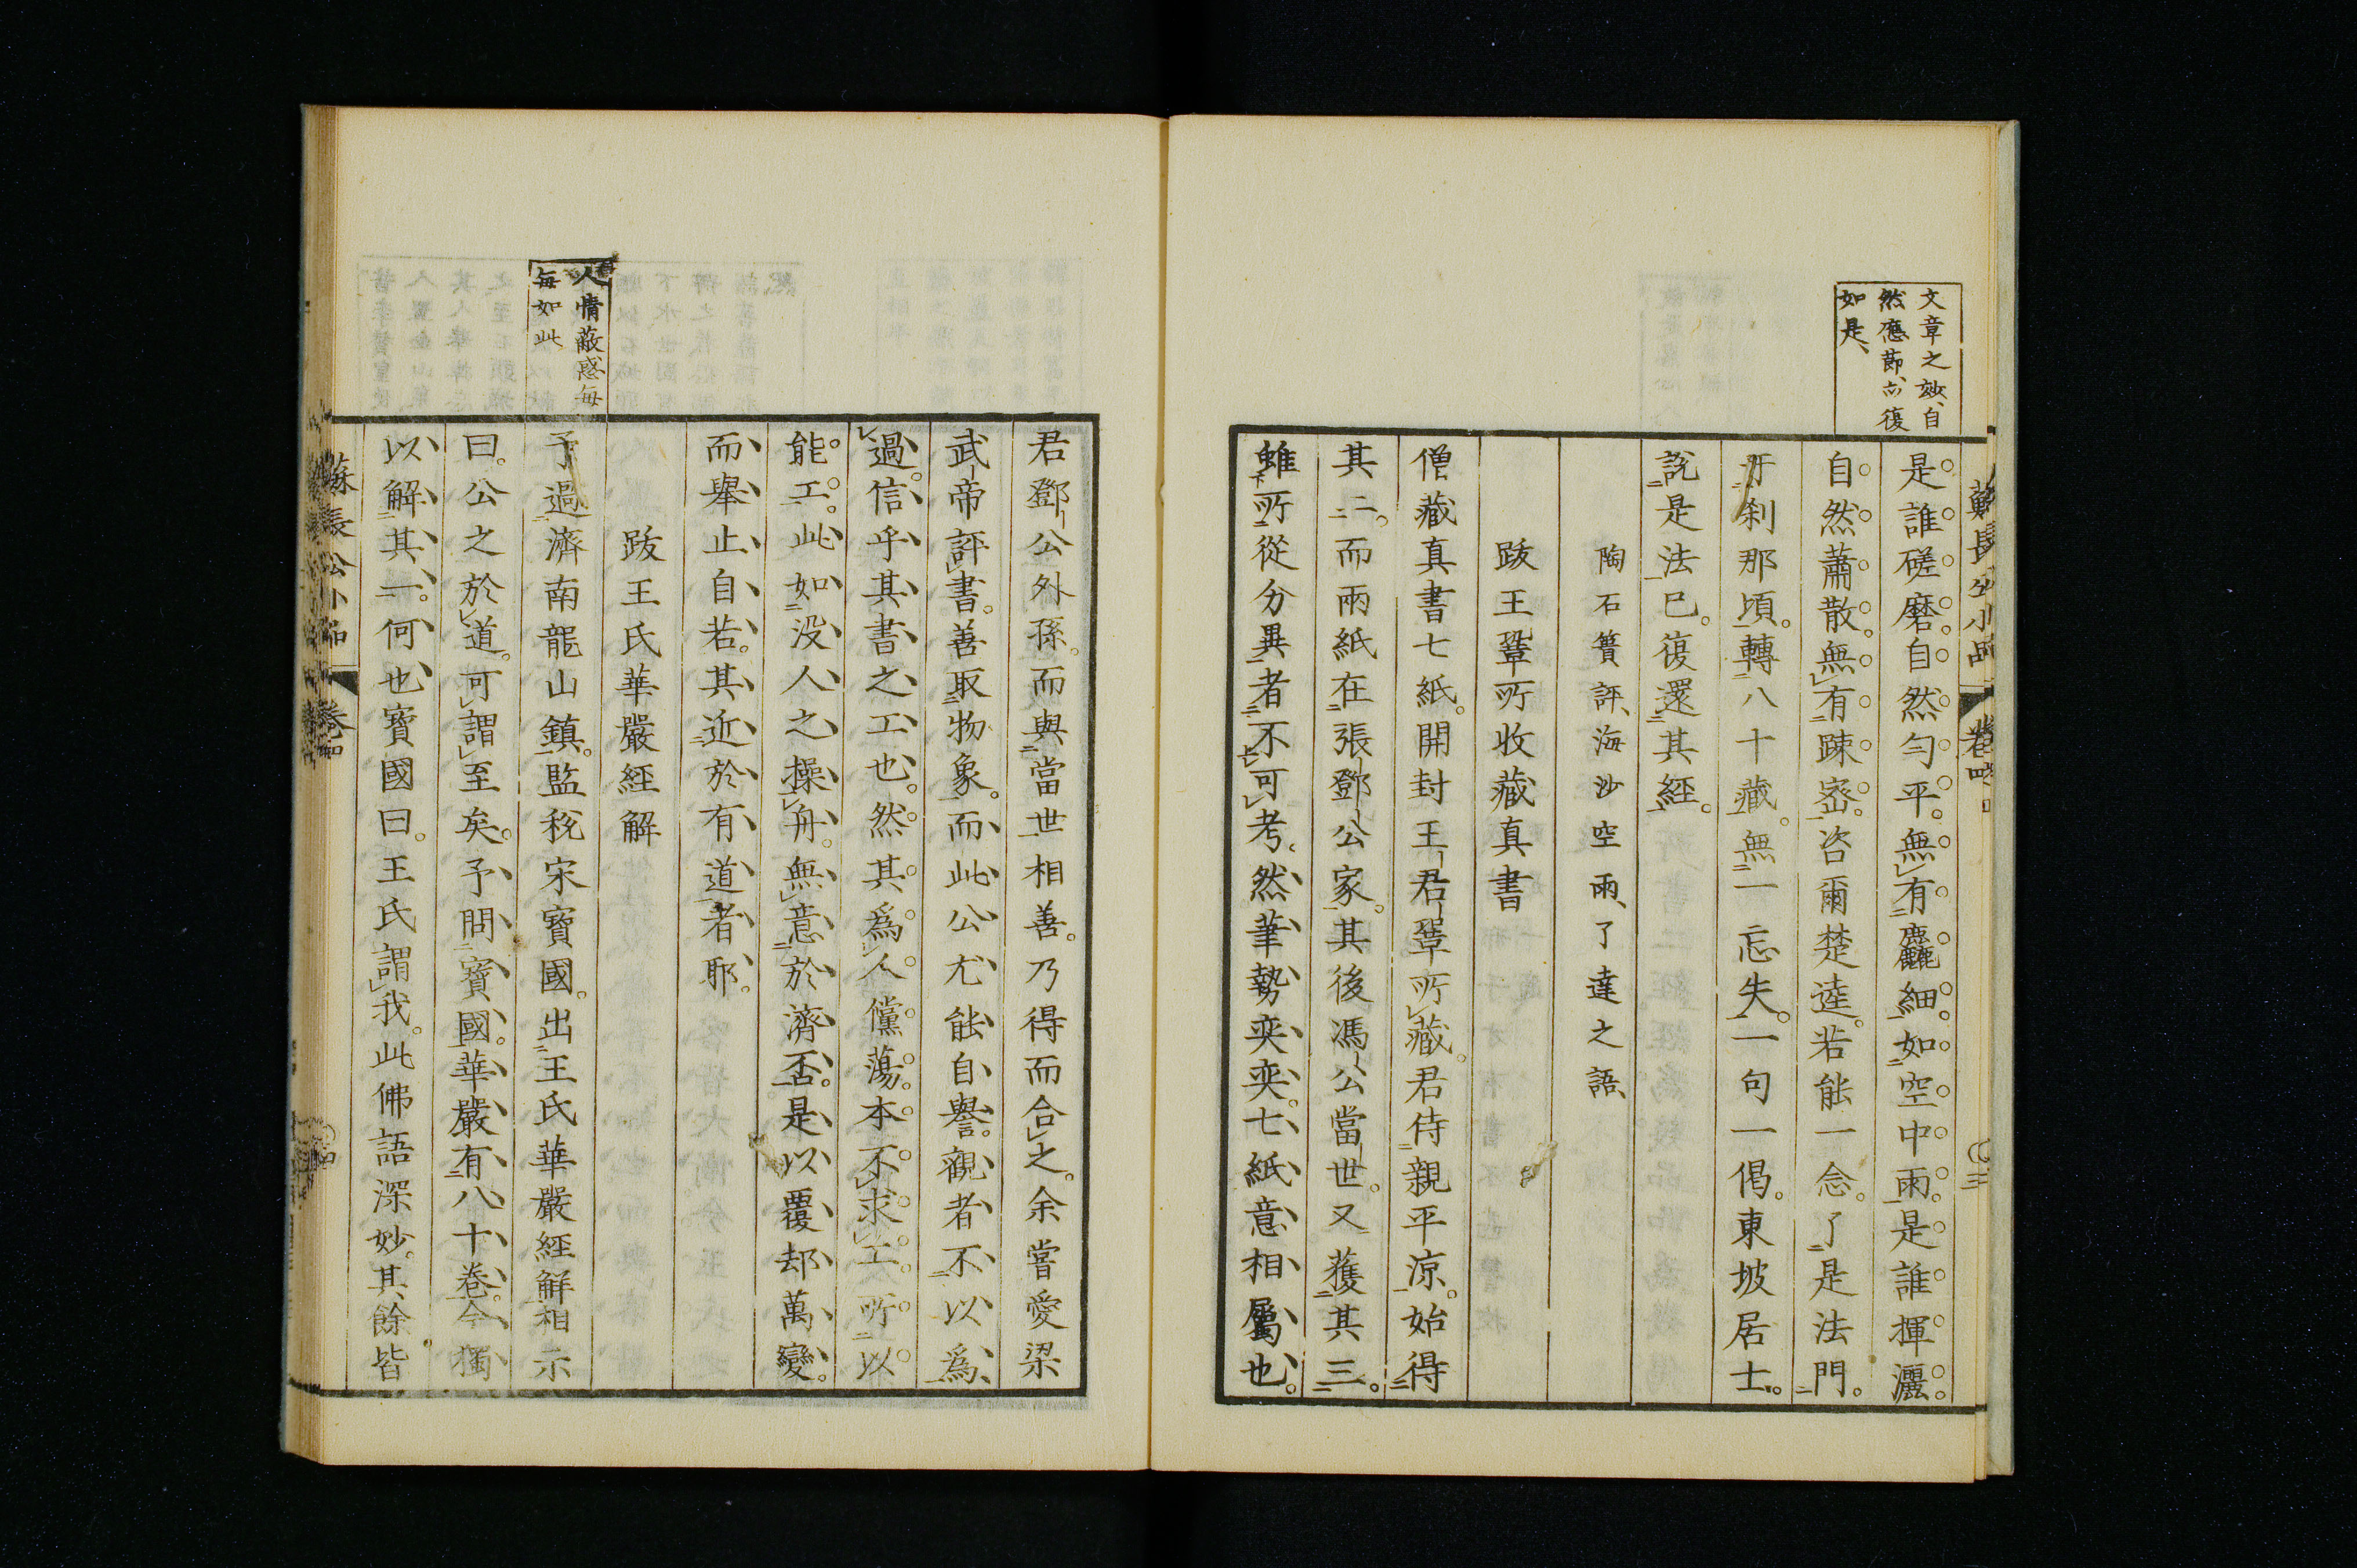 文章之妙、自
然應節、亦復
如是、
蘇長公小品 卷四
是誰磋磨。自然勻平。無有麤細。如空中雨。是誰揮灑
自然蕭散。無有踈宻。咨爾楚逵。若能一念。了是法門。
於刹那頃。轉八十藏。無一忘失。一句一偈。東坡居士。
說是法已。復還其經。
陶石簣評、海沙空雨、了達之語、
跋王鞏所收藏真書
僧藏真書七紙。開封王君鞏所藏。君侍親平涼。始得
其二。而兩紙在張鄧公家。其後馮公當世。又獲其三。
雖所從分異者不可考。然筆勢奕奕。七紙意相屬也。
君鄧公外孫。而與當世相善。乃得而合之。余嘗愛梁
武帝評書。善取物象。而此公尤能自譽。觀者不以爲
過。信乎其書之工也。然其爲人儻蕩。本不求工。所以
能工。此如没人之操舟。無意於濟否。是以覆却萬變。
而舉止自若。其近於有道者耶。
跋王氏華嚴經解
人情蔽惑每
每如此
予過濟南龍山鎮。監稅宋寶國。出王氏華嚴經解相示
曰。公之於道。可謂至矣。予問寶國。華嚴有八十卷。今獨
以解其一。何也寶國曰。王氏謂我。此佛語深妙。其餘皆
蘇長公小品 卷四